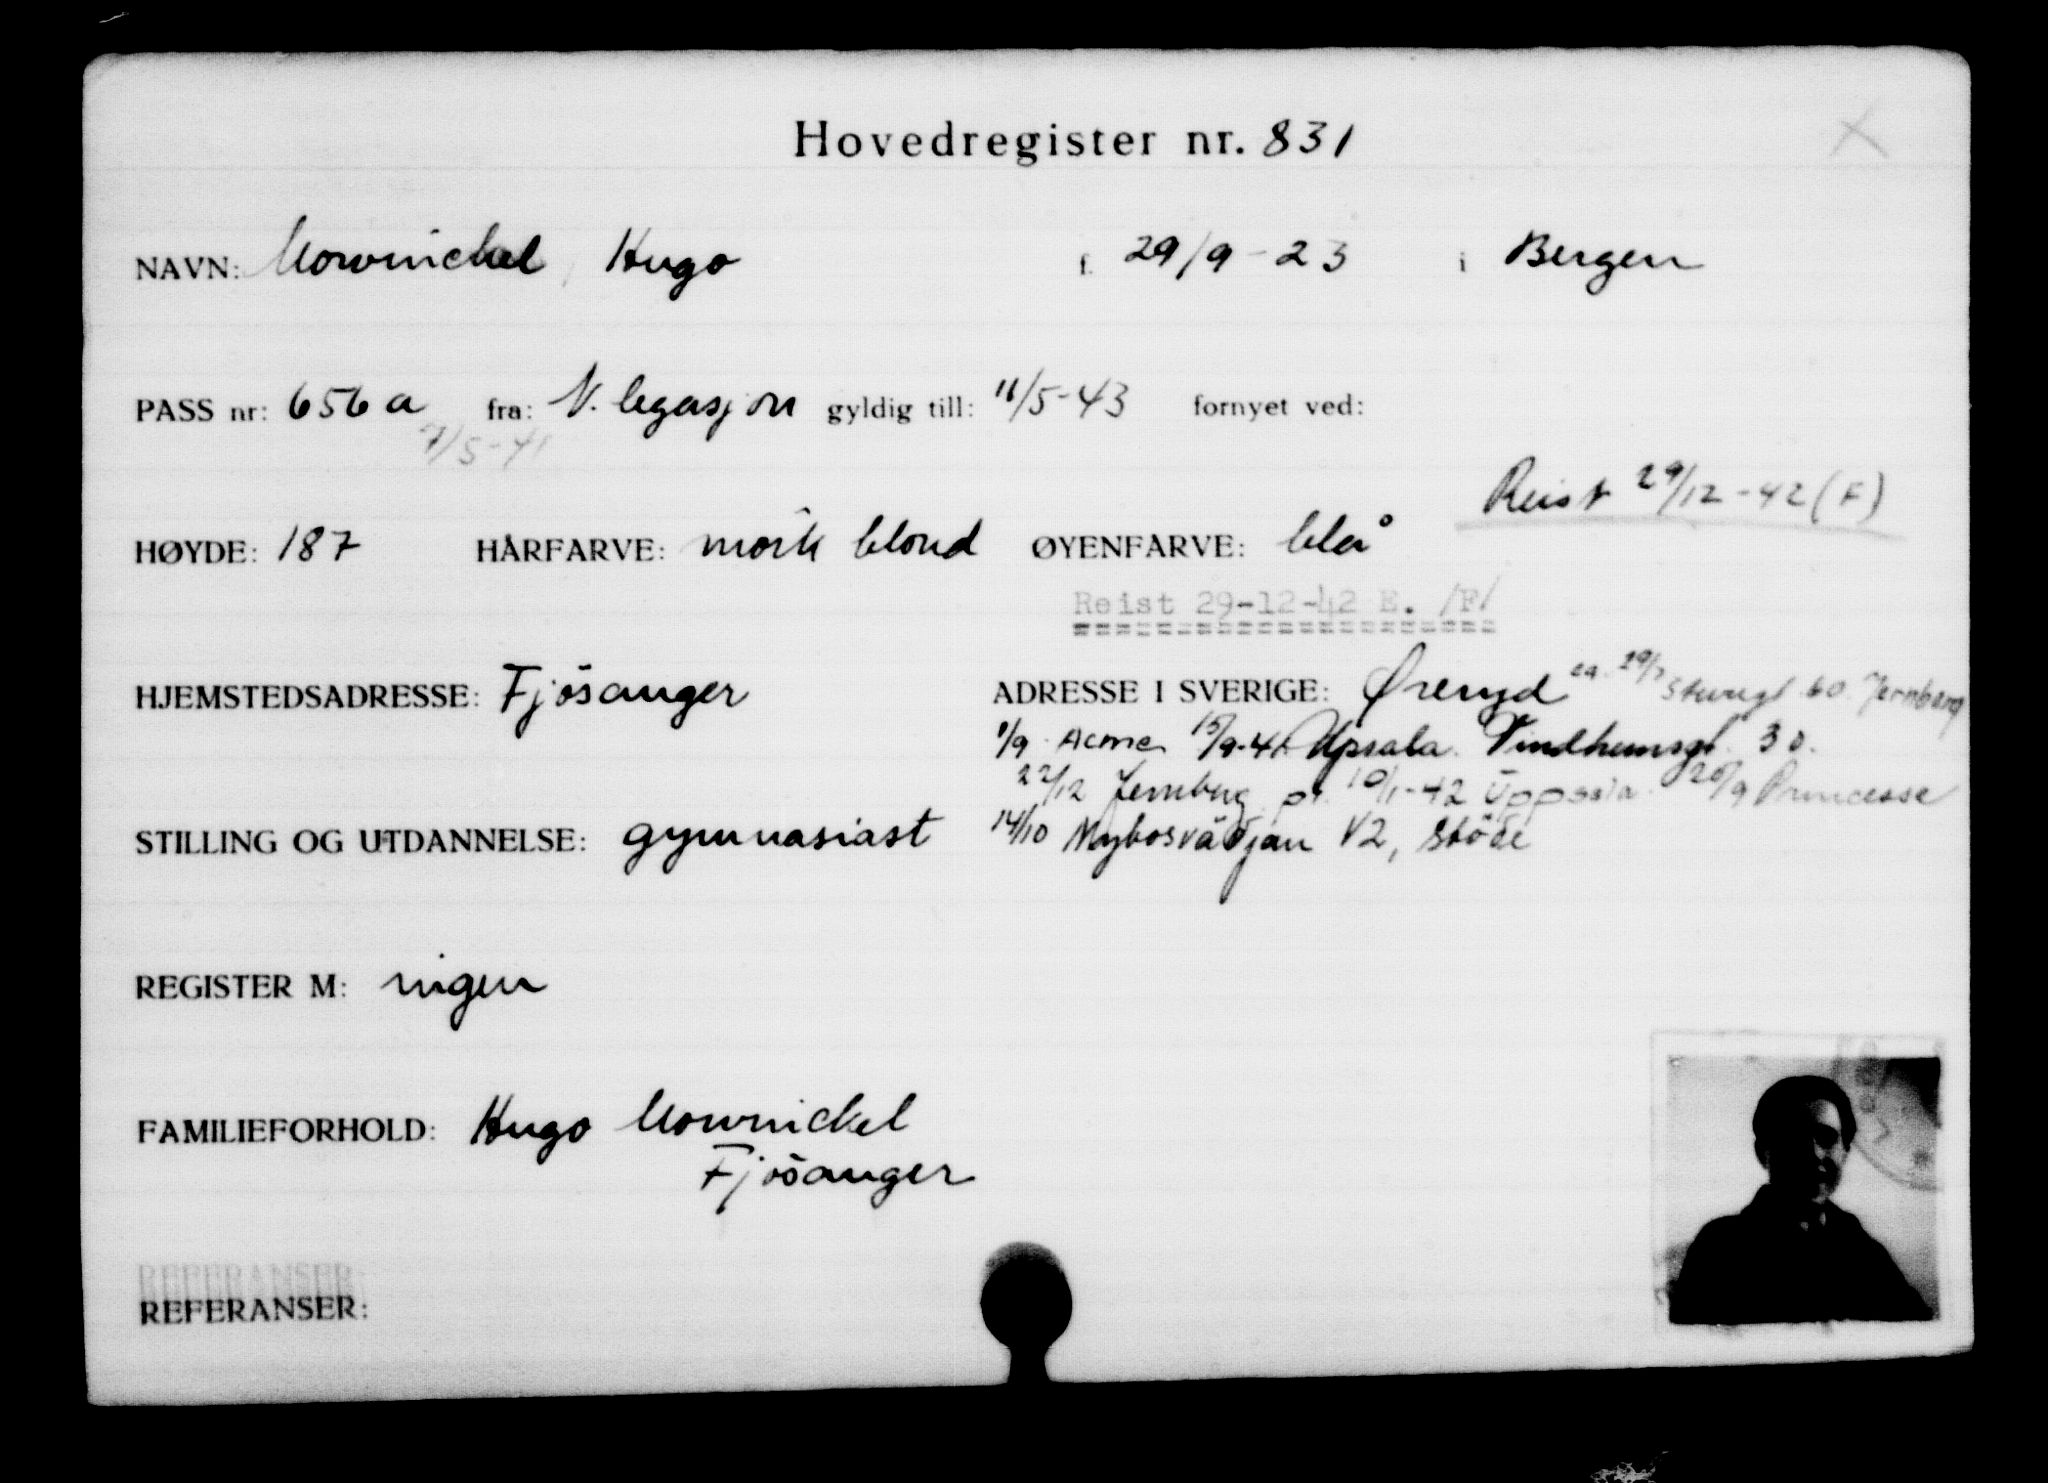 Hovedregister nr. 831
X
NAVN: Mowinckel, Hugo f. 29/9-23 i Bergen
PASS nr: 656a fra: N. legasjon gyldig till: 11/5-43 fornyet ved:
7/5-41
Reist 29/12-42 (F)
HØYDE: 187 HÅRFARVE: mörk blond ØYENFARVE: blå
Reist 29-12-42 E. /F/
HJEMSTEDSADRESSE: Fjösanger ADRESSE I SVERIGE: Øreryd ca. 60 Jernberg
1/9 Acme 15/9-41 Upsala Vindhemsgt. 30.
22/12 Jernberg 10/1-42 Uppsala 20/9 Princesse
STILLING OG UTDANNELSE: gymnasiast 14/10 V2, Stöde
REGISTER M: ingen
FAMILIEFORHOLD: Hugo Mowinckel
Fjösanger
REFERANSER:
REFERANSER: